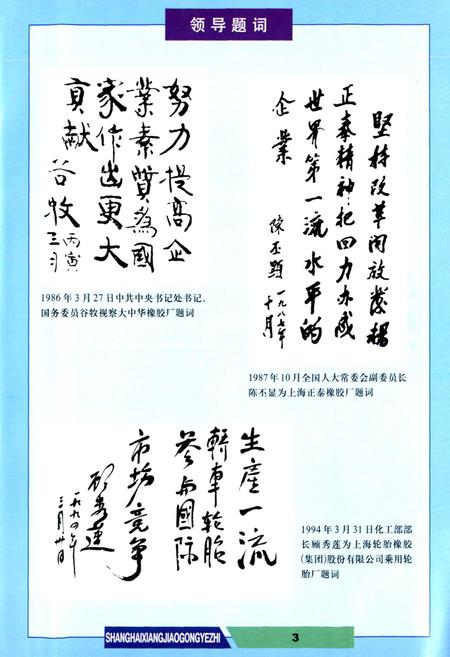 领导题词
努力提高企
業素質為國
家作出更大
贡献
谷牧 丙寅
三月
1986年3月27日中共中央书记处书记、
国务委员谷牧视察大中华橡胶厂题词
坚持改革开放發揚
正泰精神把回力办成
世界第一流水平的
企業
陈丕顯 一九八七年
十月
1987年10月全国人大常委会副委员长
陈丕显为上海正泰橡胶厂题词
生産一流
轎車轮胎
参与國际
市场竞争
顾秀莲
一九九四年
三月卅一日
1994年3月31日化工部部
长顾秀莲为上海轮胎橡胶
(集团)股份有限公司乘用轮
胎厂题词
SHANGHAIXIANGJIAOGONGYEZHI
3